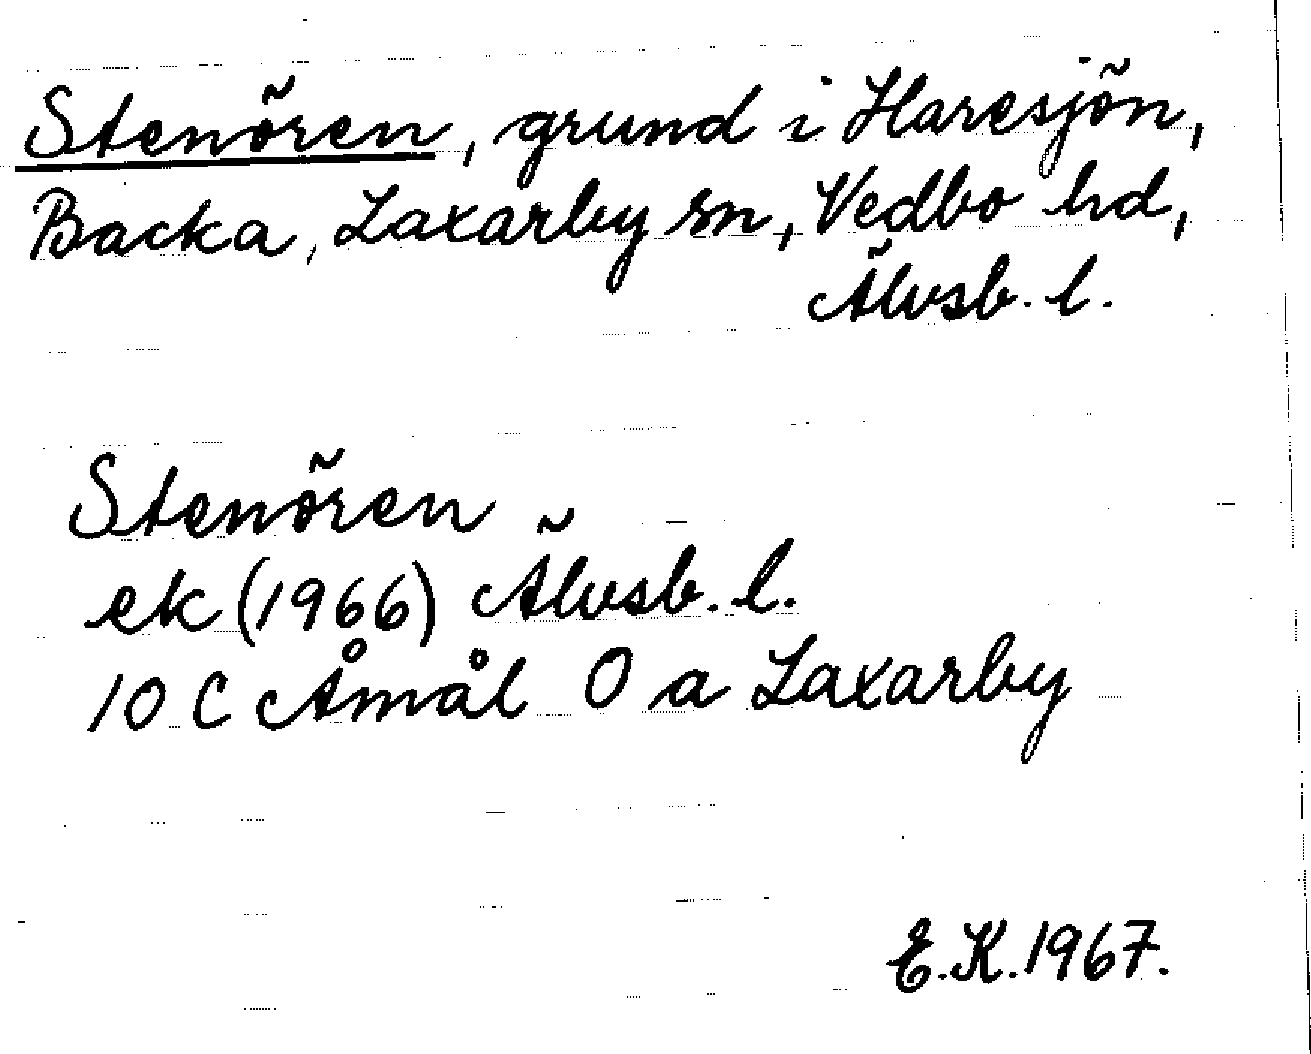 Stenören, grund i Haresjön,
Backa, Laxarby sn, Vedbo hd,
Älvsb. l.
Stenören
ek (1966) Älvsb. l.
10 C Åmål O a Laxarby
E.K. 1967.